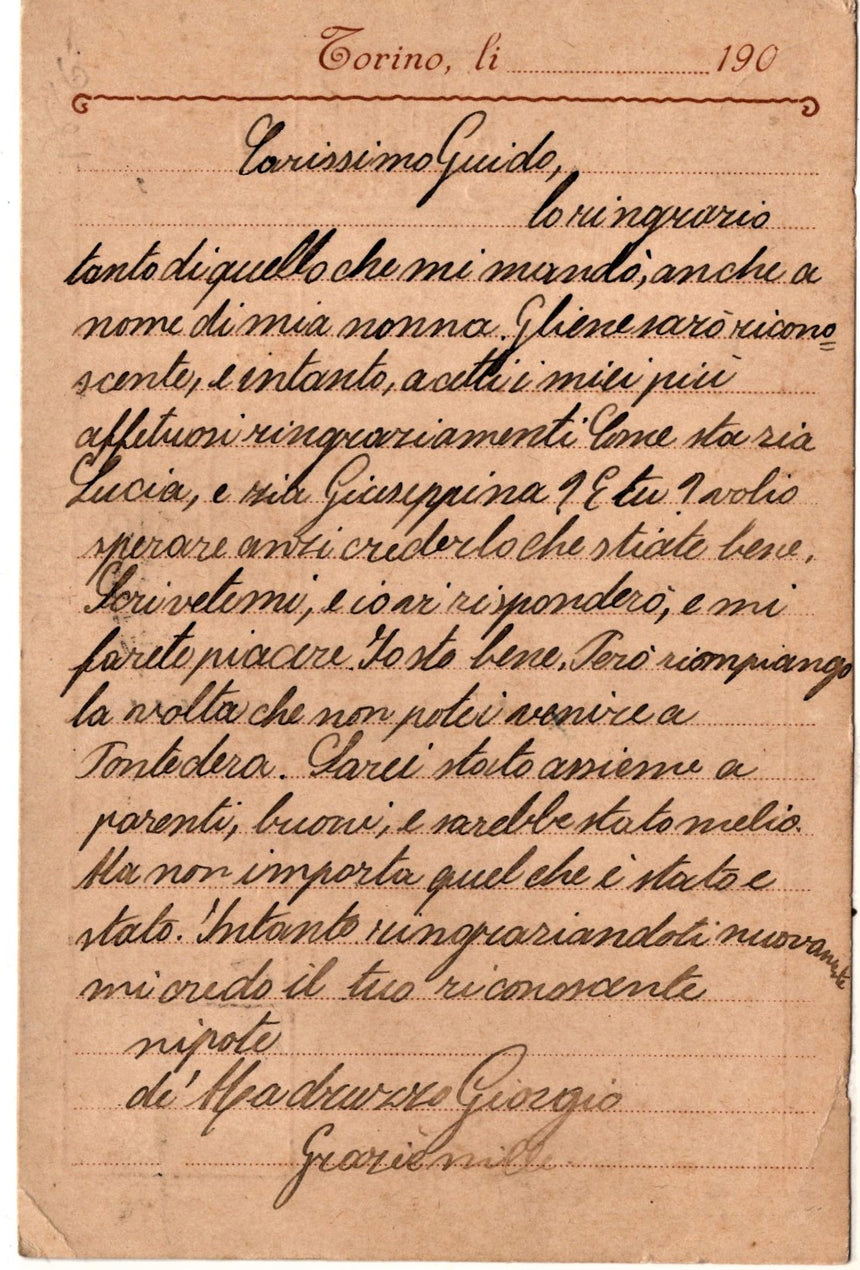 Torino, li 190
Carissimo Guido,
lo ringrazio
tanto di quello che mi mandò, anche a
nome di mia nonna. Gliene sarò ricono=
scente, e intanto, acetti i miei più
affetuosi ringraziamenti Come sta zia
Lucia, e zia Giuseppina? E tu? volio
sperare anzi crederlo che stiate bene.
Scrivetemi, e io vi risponderò, e mi
farete piacere. Io sto bene. Però riompiango
la volta che non potei venire a
Pontedera. Sarei stato assieme a
parenti, buoni, e sarebbe stato melio.
Ma non importa quel che è stato e
stato. Intanto ringraziandoti nuovamente
mi credo il tuo riconoscente
nipote
de' Madruzzo Giorgio
Grazie mille